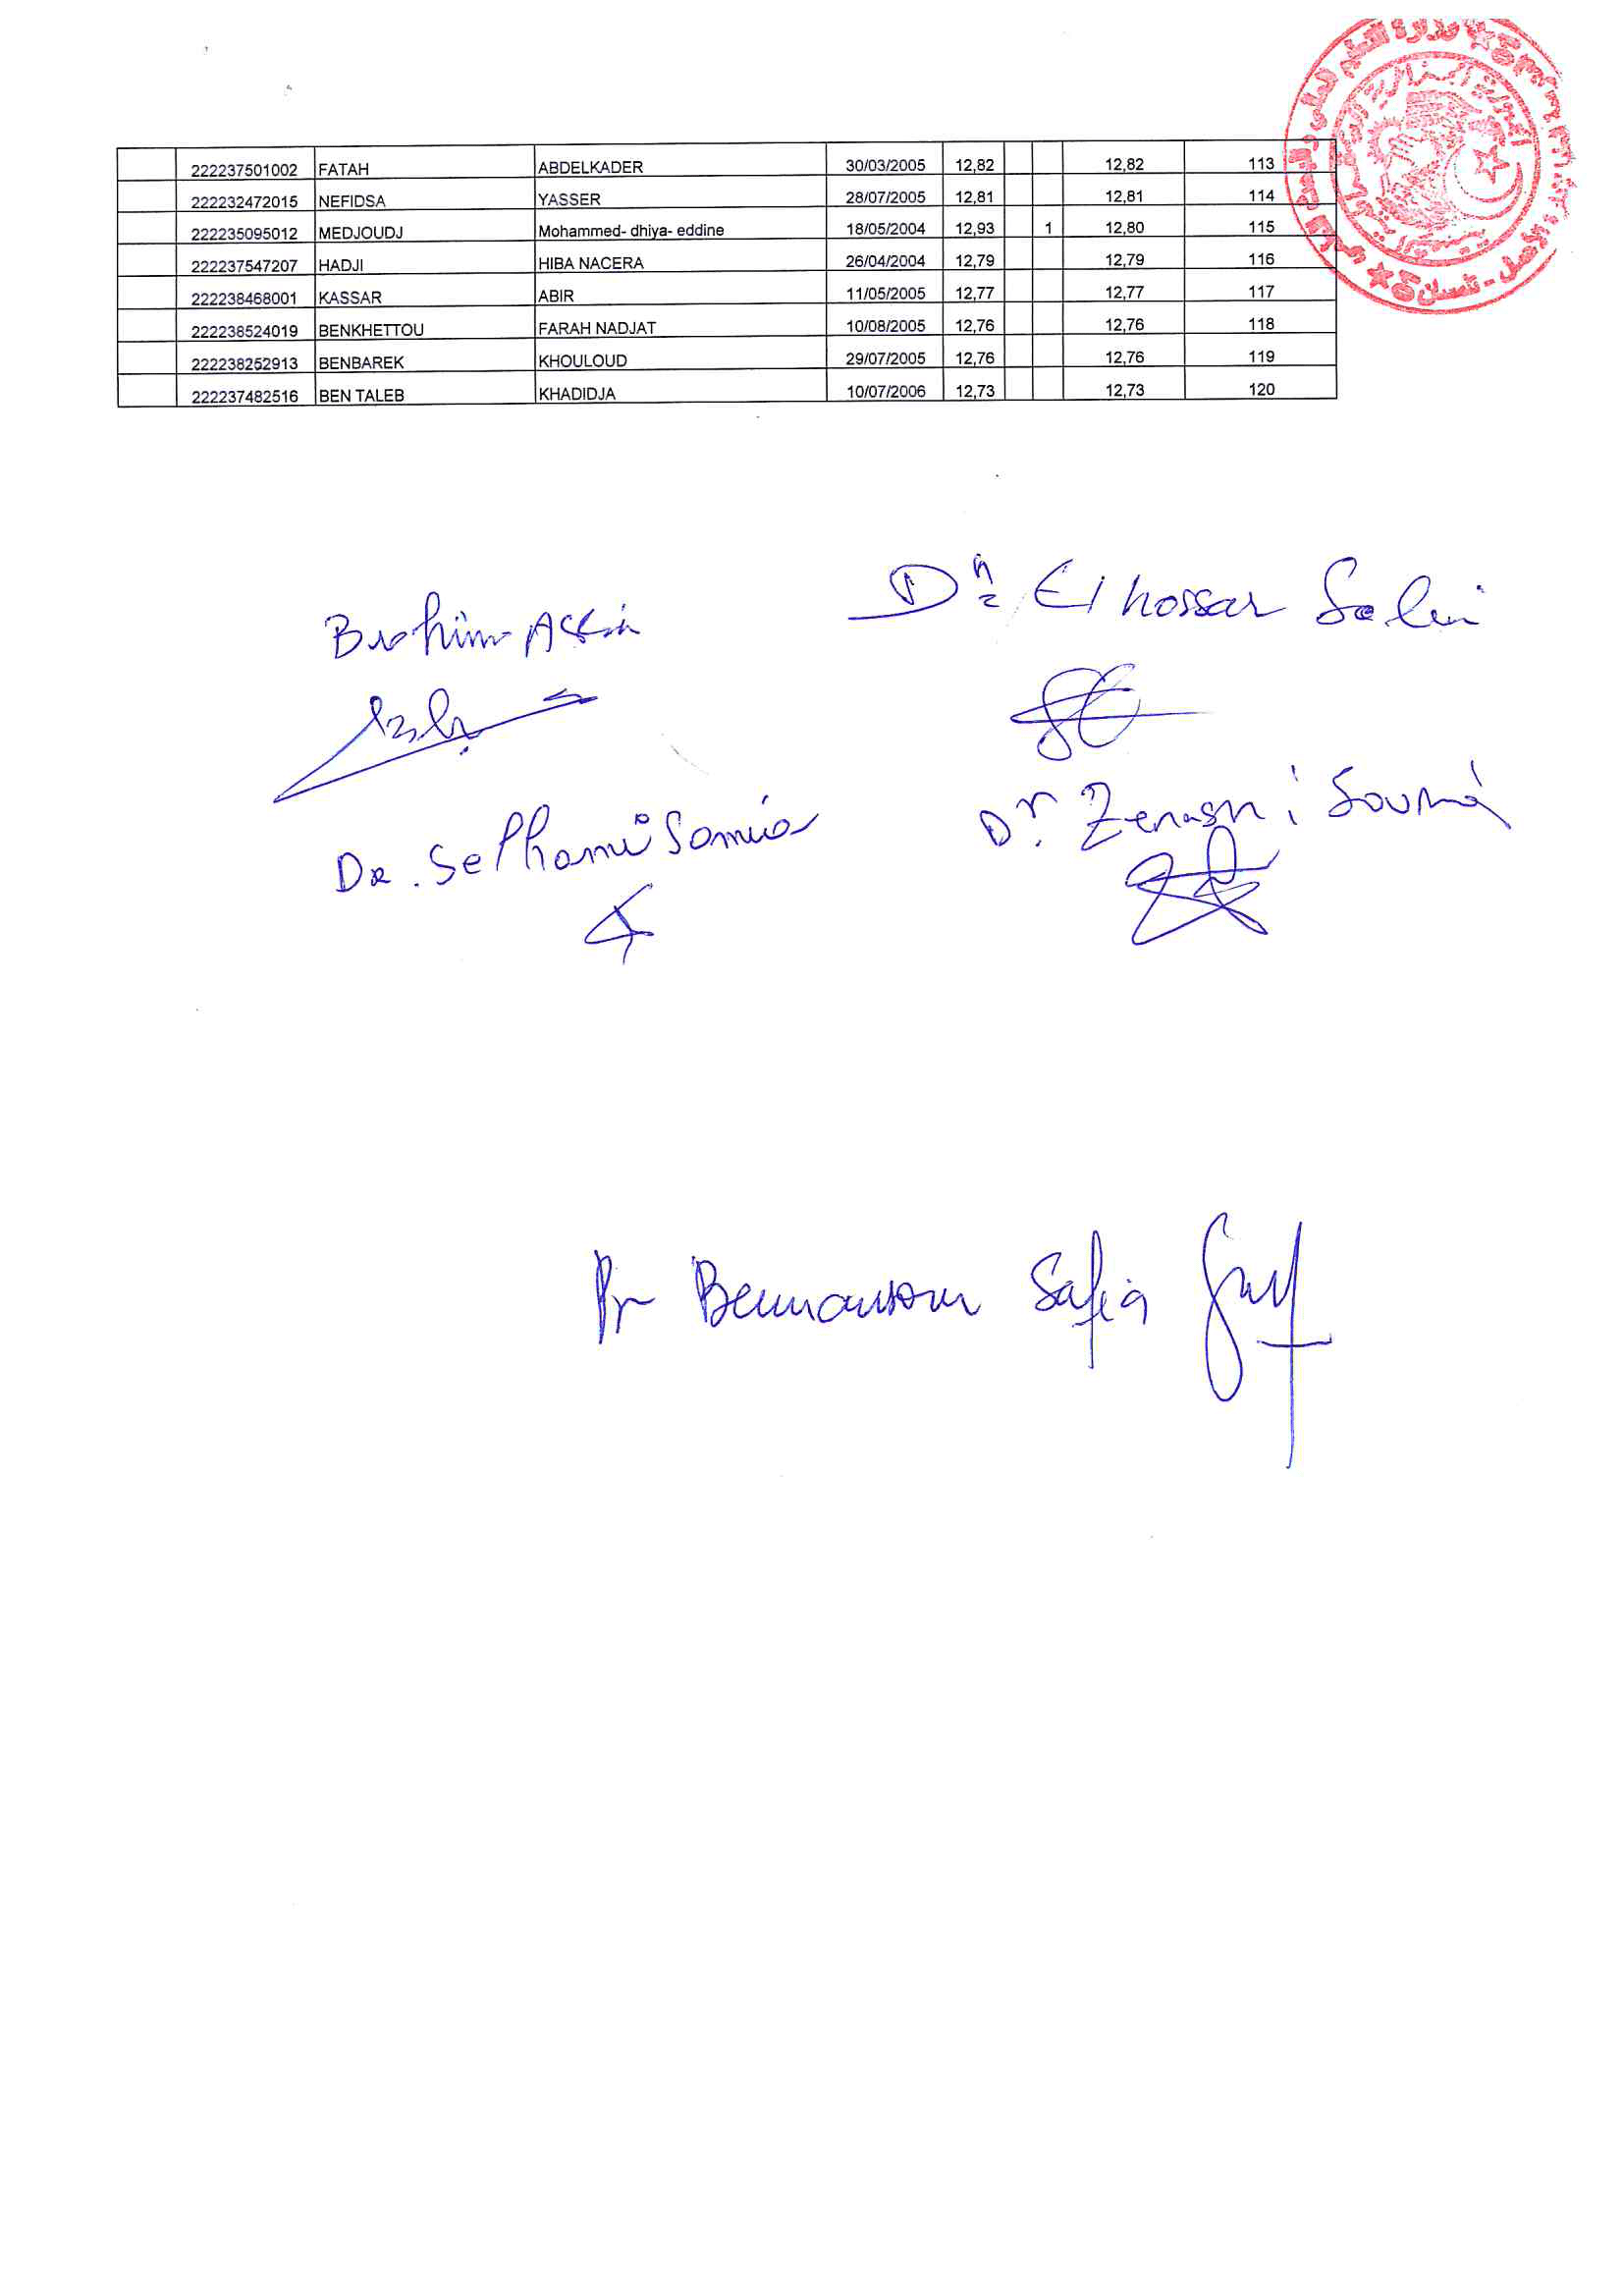 222237501002 FATAH ABDELKADER 30/03/2005 12,82 12,82 113
222232472015 NEFIDSA YASSER 28/07/2005 12,81 12,81 114
222235095012 MEDJOUDJ Mohammed- dhiya- eddine 18/05/2004 12,93 1 12,80 115
222237547207 HADJI HIBA NACERA 26/04/2004 12,79 12,79 116
222238468001 KASSAR ABIR 11/05/2005 12,77 12,77 117
222238524019 BENKHETTOU FARAH NADJAT 10/08/2005 12,76 12,76 118
222238252913 BENBAREK KHOULOUD 29/07/2005 12,76 12,76 119
222237482516 BEN TALEB KHADIDJA 10/07/2006 12,73 12,73 120
Brahim
Dr
Dr. Selhami Samia
Dr. Zenasni
Pr Benmansour Safia